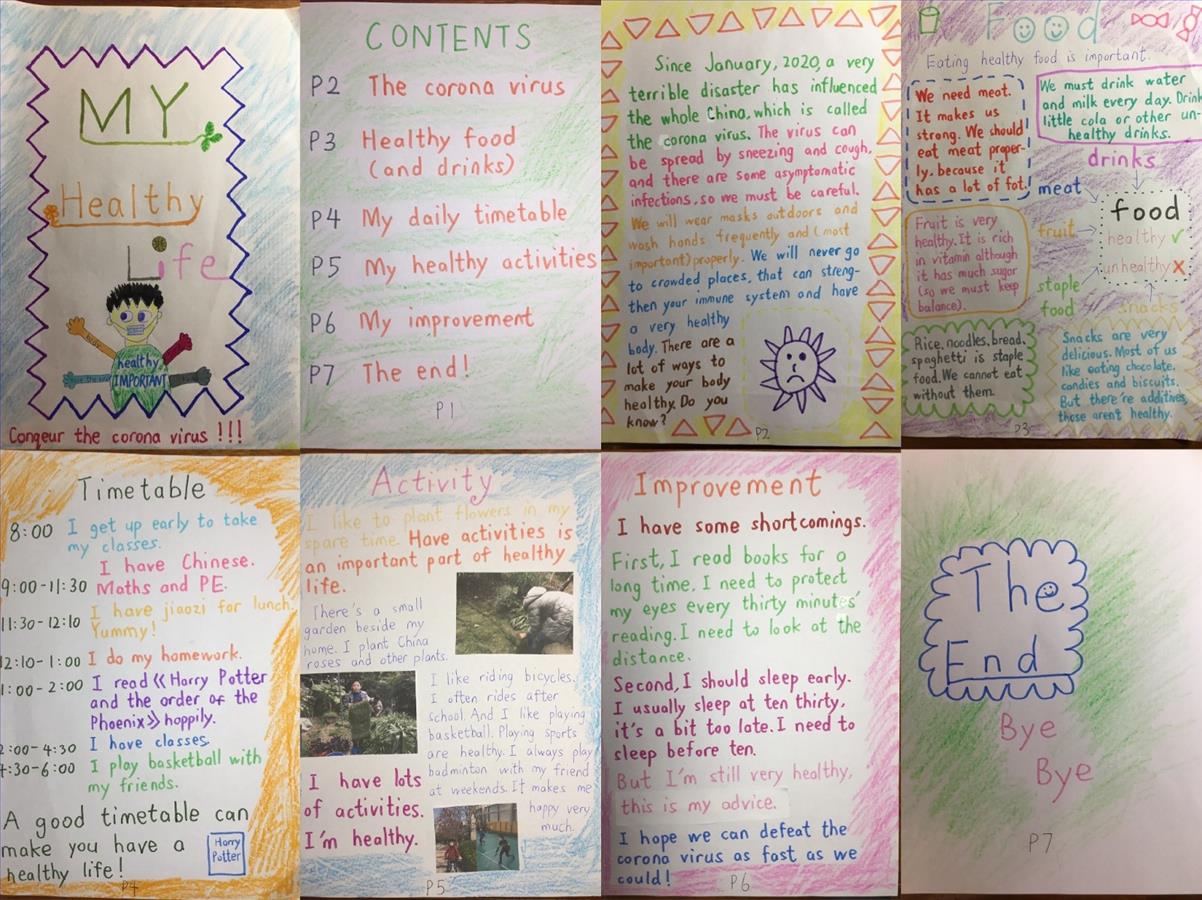 MY
Healthy
Life
healthy
IMPORTANT
Conqeur the corona virus !!!
CONTENTS
P2 The corona virus
P3 Healthy food
(and drinks)
P4 My daily timetable
P5 My healthy activities
P6 My improvement
P7 The end!
P1
Since January, 2020, a very
terrible disaster has influenced
the whole China, which is called
the corona virus. The virus can
be spread by sneezing and cough,
and there are some asymptomatic
infections, so we must be careful.
We will wear masks outdoors and
wash hands frequently and (most
important) properly. We will never go
to crowded places, that can streng-
then your immune system and have
a very healthy
body. There are a
lot of ways to
make your body
healthy. Do you
know?
P2
Food
Eating healthy food is important.
We need meat.
It makes us
strong. We should
eat meat proper-
ly, because it
has a lot of fat.
We must drink water
and milk every day. Drink
little cola or other un-
healthy drinks.
drinks
meat
food
healthy ✓
unhealthy ✗
fruit
Fruit is very
healthy. It is rich
in vitamin although
it has much sugar
(so we must keep
balance).
staple
food
snacks
Rice, noodles, bread,
spaghetti is staple
food. We cannot eat
without them.
Snacks are very
delicious. Most of us
like eating chocolate,
candies and biscuits.
But there're additives,
those aren't healthy.
P3
Timetable
8:00 I get up early to take
my classes.
9:00-11:30 I have Chinese.
Maths and PE.
11:30-12:10 I have jiaozi for lunch.
Yummy!
12:10-1:00 I do my homework.
1:00-2:00 I read 《Harry Potter
and the order of the
Phoenix》 happily.
2:00-4:30 I have classes.
4:30-6:00 I play basketball with
my friends.
A good timetable can
make you have a
healthy life!
Harry
Potter
P4
Activity
I like to plant flowers in my
spare time. Have activities is
an important part of healthy
life.
There's a small
garden beside my
home. I plant China
roses and other plants.
I like riding bicycles.
I often rides after
school. And I like playing
basketball. Playing sports
are healthy. I always play
badminton with my friend
at weekends. It makes me
happy very
much.
I have lots
of activities.
I'm healthy.
P5
Improvement
I have some shortcomings.
First, I read books for a
long time. I need to protect
my eyes every thirty minutes'
reading. I need to look at the
distance.
Second, I should sleep early.
I usually sleep at ten thirty,
it's a bit too late. I need to
sleep before ten.
But I'm still very healthy,
this is my advice.
I hope we can defeat the
corona virus as fast as we
could!
P6
The
End
Bye
Bye
P7